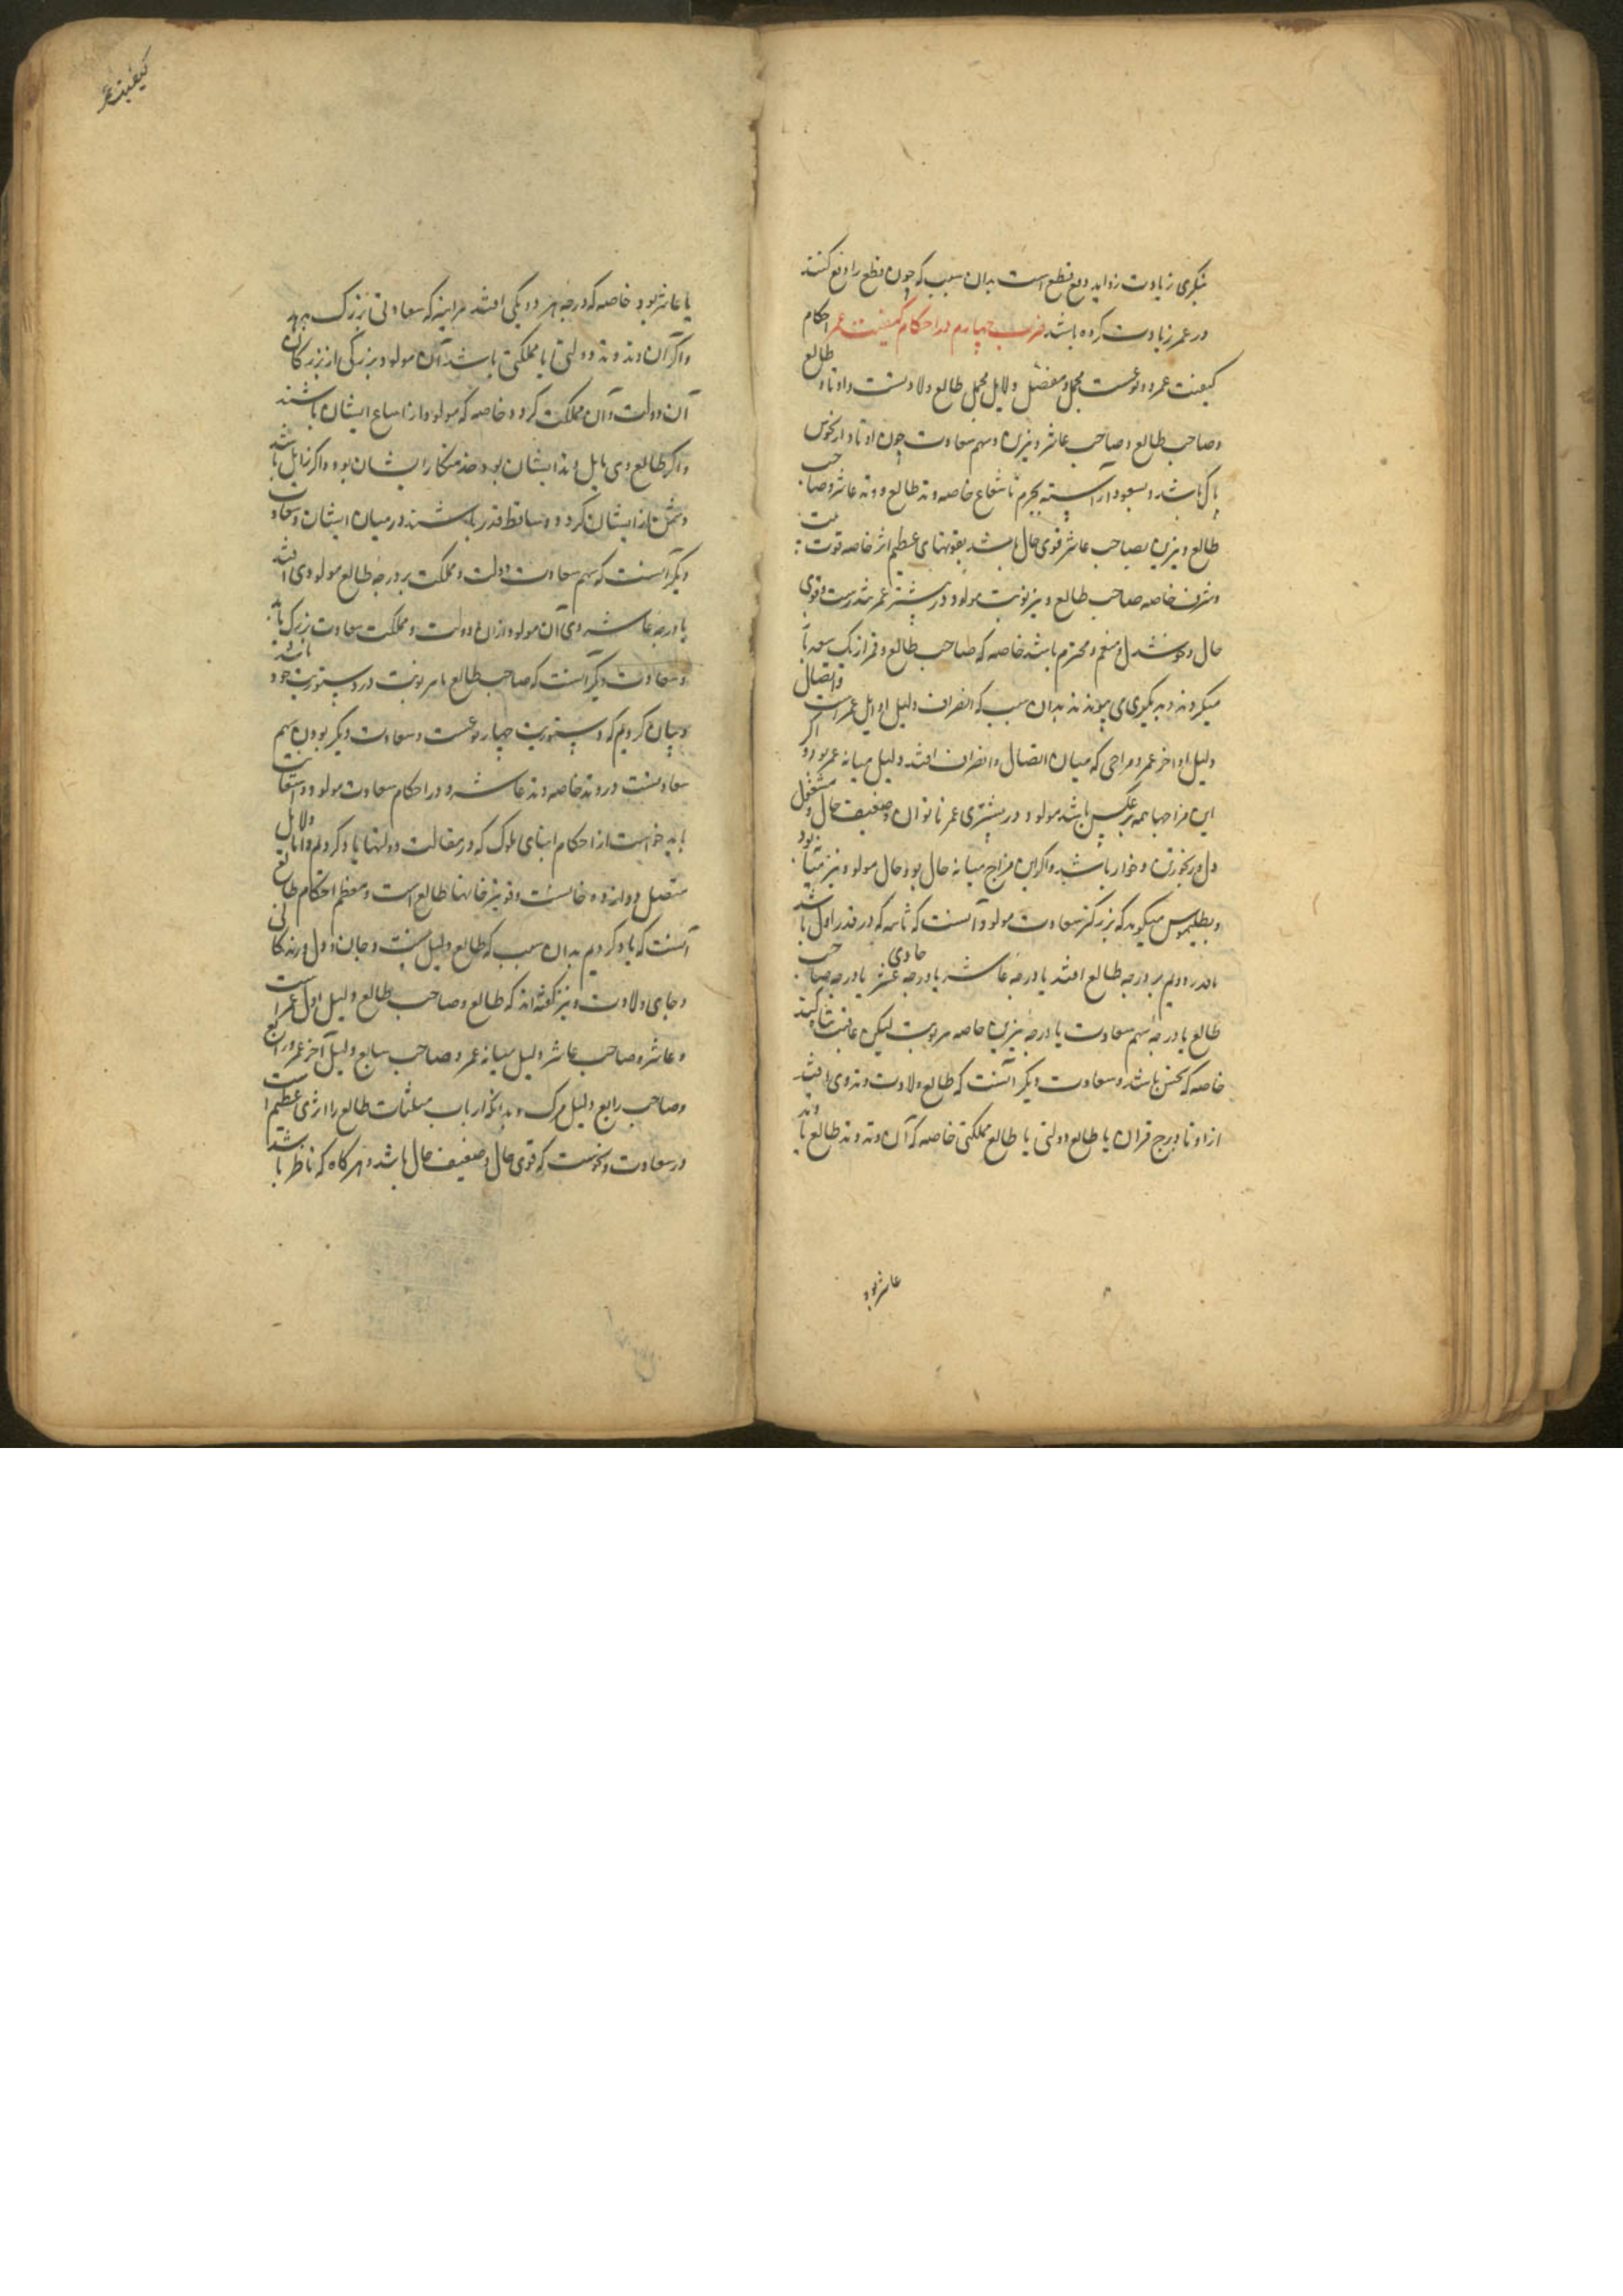 دیگری زیادت زواید دفع قطع است بدان سبب که چون قطع را دفع کنند
در عمر زیادت کرده باشد ضرب چهارم در احکام کیفیت عمر احکام
کیفیت عمر دو نوعست مجمل و مفصل دلایل مجمل طالع ولادتست و اوتاد طالع
و صاحب طالع و صاحب عاشر و نیرین و سهم سعادت چون اوتاد از نحوس
پاک باشد و بسعود آراسته بجرم تا شعاع خاصه وتد طالع و وتد عاشر و صاحب
طالع و نیرین صاحب عاشر قوی حال باشد بقوتهای عظیم اثر خاصه قوت بیت
و شرف خاصه صاحب طالع و نیر نوبت مولود در بیشتر عمر تندرست و قوی
حال و خوشدل و منعم و محترم باشد خاصه که صاحب طالع و قمر از یک سعد باز
میگردند و بدیگری می پیوندند بدان سبب که انصراف دلیل اوایل عمر است و اتصال
دلیل اواخر عمر و مزاجی که میان اتصال و انصراف افتد دلیل میانه عمر بود و اگر
این مزاجها همه برعکس باشد مولود در بیشتری عمر ناتوان و ضعیف حال و مشغول
دل و رنجور تن و خوار باشد و اگر این مزاج میانه حال بود حال مولود نیز میانه بود
و بطلیموس میگوید که بزرگتر سعادت مولود آنست که ثابته که در قدر اول باشد
یا قدر دویم بر درجه طالع افتد یا درجه عاشر یا درجه حادی عشر یا درجه صاحب
طالع یا درجه سهم سعادت یا درجه نیرین خاصه نوبت لیکن عاقبت
خاصه که نحس باشد و سعادت دیگر آنست که طالع ولادت وتدی افتد
از اوتاد برج قران یا طالع دولتی یا طالع مملکتی خاصه که آن وتد وتد طالع یا وتد
عاشر بود
کیفیت عمر
یا عاشر بود خاصه که درجه هر دو یکی افتد هراینه که سعادتی بزرگ بود
و اگر آن وتد وتد دولتی یا مملکتی باشد آن مولود بزرگی از بزرگان
آن دولت و آن مملکت گردد خاصه که مولود از اتباع ایشان باشند
و اگر طالع وی مایل وتد ایشان بود خدمتکار ایشان بود و اگر زایل باشد
دشمن از ایشان گردد و ساقط قدر باشند در میان ایشان و سعادت
دیگر آنست که سهم سعادت دولت و مملکت بر درجه طالع مولود وی افتد
یا درجه عاشر وی آن مولود از آن دولت و مملکت سعادت بزرگ یابد
و سعادت دیگر آنست که صاحب طالع با نیر نوبت در دستوریت خود باشد
و بیان کردیم که دستوریت چهار نوعست و سعادت دیگر بودن سهم
سعادتست در وتد خاصه وتد عاشر و در احکام سعادت مولود استعانت
باید خواست از احکام ابنای ملوک که در مقالت دولتها یاد کردیم و اما دلایل
متصل دوازده خانست و قویترخانها طالع است و معظم احکام طالع
آنست که یاد کردیم بدان سبب که طالع دلیل تنست و جان و دل و زندگانی
و جای ولادت و نیز گفته‌اند که طالع و صاحب طالع دلیل اول عمر است
و عاشر و صاحب عاشر دلیل میانه عمر و صاحب سابع دلیل آخر عمر و رابع
و صاحب رابع دلیل مرگ و بدانکه ارباب مثلثات طالع را اثری عظیم است
در سعادت و نحوست که قوی حال و ضعیف حال باشد و هر گاه که ناظر باشد